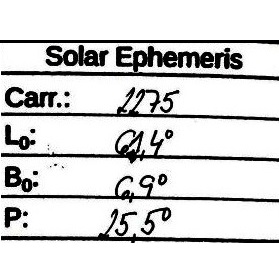 Solar Ephemeris
Carr.: 2275
L₀: 61,4°
B₀: 6,9°
P: 25,5°